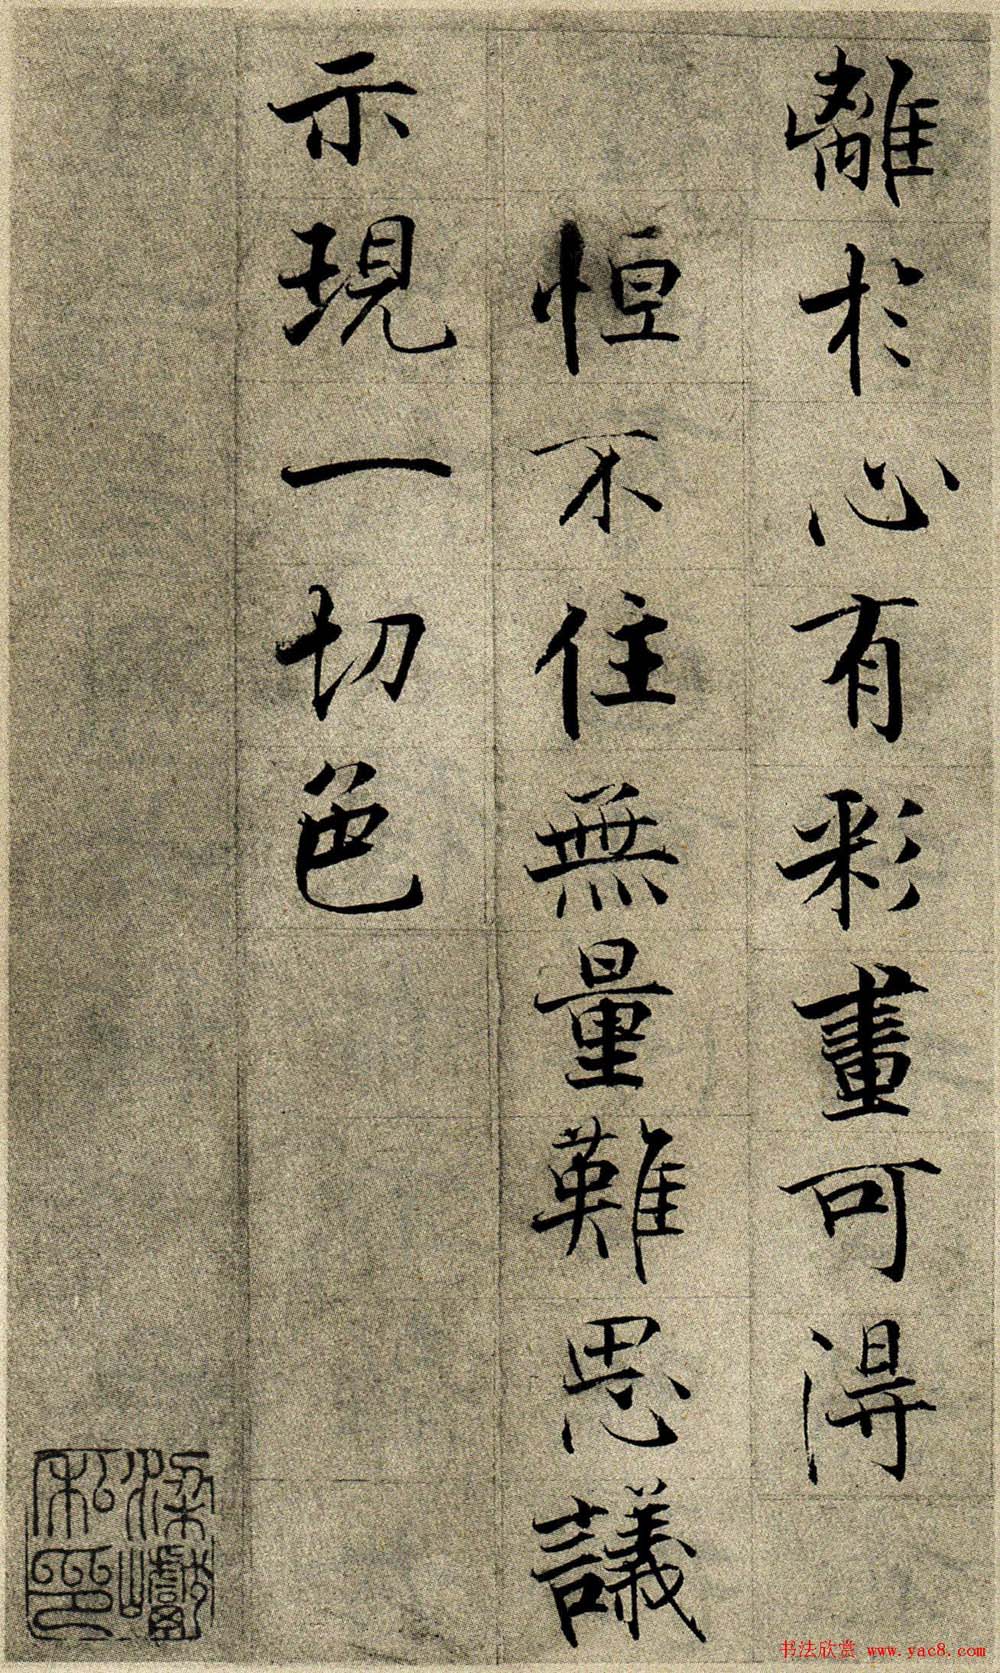 離於心有彩畫可得
恒不住無量難思議
示現一切色
梁巘私印
书法欣赏 www.yac8.com